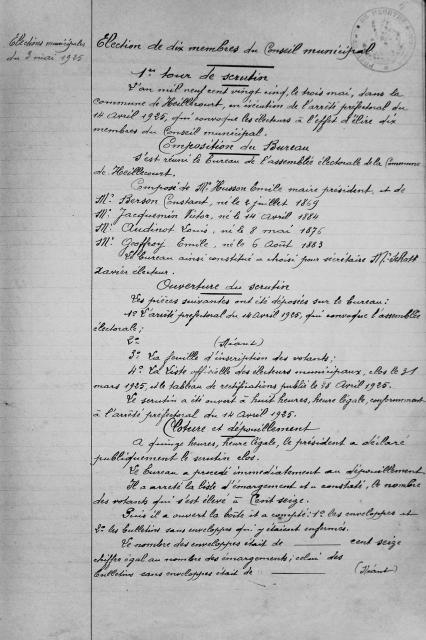 Elections municipales
du 3 mai 1925
Election de dix membres du Conseil municipal
1er tour de scrutin
L'an mil neuf cent vingt cinq, le trois mai, dans la
commune de Heillecourt, en exécution de l'arrêté préfectoral du
14 Avril 1925, qui convoque les électeurs à l'effet d'élire dix
membres du Conseil municipal.
Composition du Bureau
S'est réuni le bureau de l'assemblée électorale de la Commune
de Heillecourt.
Composé de Mr Husson Emile maire président, et de
Mr Berson Constant, né le 2 juillet 1849
Mr Jacquemin Victor, né le 14 Avril 1884
Mr Audinot Louis, né le 8 mai 1876
Mr Geoffroy Emile, né le 6 Août 1883
Le bureau ainsi constitué a choisi pour secrétaire Mr
Xavier électeur.
Ouverture du scrutin
Les pièces suivantes ont été déposées sur le bureau:
1° L'arrêté préfectoral du 14 avril 1925, qui convoque l'assemblée
électorale;
2° (Néant)
3° La feuille d'inscription des votants;
4° La liste officielle des électeurs municipaux, close le 31
mars 1925, et le tableau de rectifications publié le 28 Avril 1925.
Le scrutin a été ouvert à huit heures, heure légale, conformément
à l'arrêté préfectoral du 14 avril 1925.
Cloture et dépouillement
A quinze heures, heure légale, le président a déclaré
publiquement le scrutin clos.
Le bureau a procédé immédiatement au dépouillement
Il a arrêté la liste d'émargement et a constaté, le nombre
des votants qui s'est élevé à Cent seize.
Puis il a ouvert la boîte et a compté: 1° les enveloppes et
2° les bulletins sans enveloppes qui y étaient enfermés.
Le nombre des enveloppes était de cent seize
chiffre égal au nombre des émargements; celui des
bulletins sans enveloppes était de (Néant)